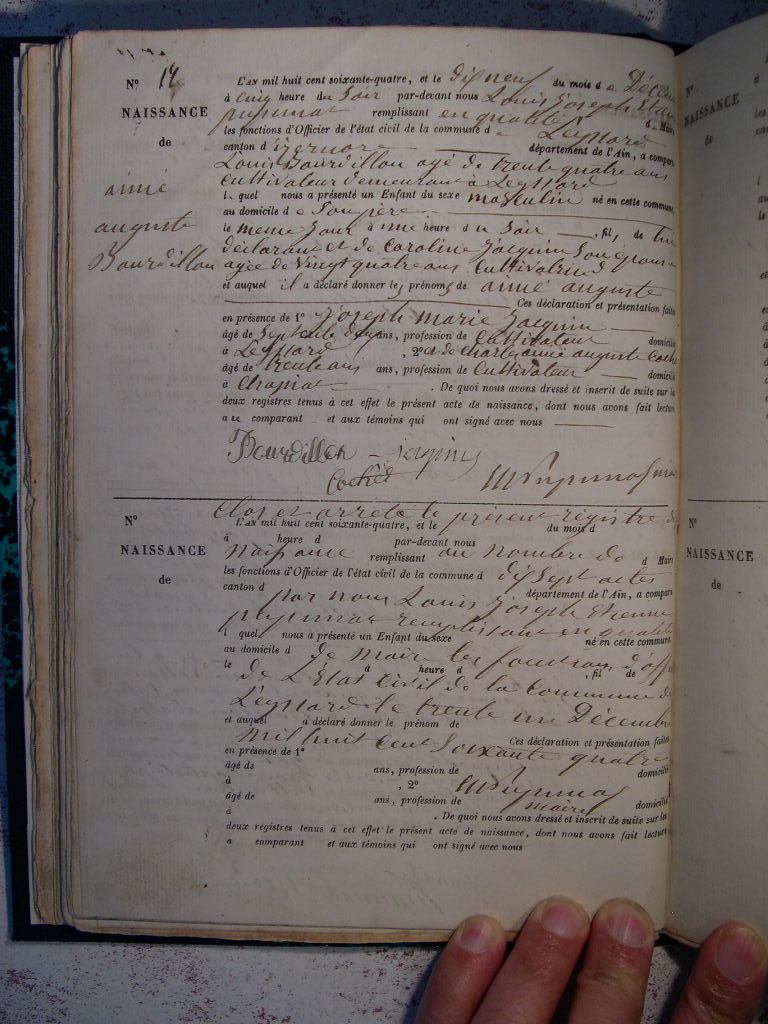 N° 17
NAISSANCE
de
aimé
auguste
Bourdillon
L'AN mil huit cent soixante-quatre, et le dix neuf du mois de Décem
à cinq heure du Soir par-devant nous Louis joseph
remplissant en qualité d Maire
les fonctions d'Officier de l'état civil de la commune d Leyssard
canton d izernore département de l'Ain, a comparu
Louis Bourdillon agé de trente quatre ans
Cultivateur demeurant à Leyssard
l quel nous a présenté un Enfant du sexe masculin né en cette commune,
au domicile de Son père
le meme jour à une heure du Soir , fils de lui
déclarant et de Caroline jacquin Son epouse
agée de vingt quatre ans Cultivatrice
et auquel il a déclaré donner les prénoms de aimé auguste
Ces déclaration et présentation faites
en présence de 1° joseph marie jacquin
âgé de Septente deux ans, profession de Cultivateur domicilié
à Leyssard , 2° et de Charles aimé auguste Cochet
âgé de trente ans ans, profession de Cultivateur domicilié
à Chapiat . De quoi nous avons dressé et inscrit de suite sur les
deux registres tenus à cet effet le présent acte de naissance, dont nous avons fait lecture
au comparant et aux témoins qui ont signé avec nous
Bourdillon jaquin
Cochet
N°
NAISSANCE
de
Clos et arrêté le présent régistre de
L'AN mil huit cent soixante-quatre, et le du mois d
à heure d par-devant nous
naissance au nombre de
remplissant d Maire
les fonctions d'Officier de l'état civil de la commune d dix Sept actes
canton d département de l'Ain, a comparu
par nous Louis joseph Etienne
remplissant en qualité
l quel nous a présenté un Enfant du sexe né en cette commune,
au domicile d de maire les fonctions d'off
le à heure d , fil de
de L'État Civil de la Commune de
Leyssard le trente un Décembre
et auquel a déclaré donner le prénom de
mil huit cent Soixante quatre
Ces déclaration et présentation faites
en présence de 1°
âgé de ans, profession de domicilié
à , 2°
âgé de ans, profession de maire domicilié
à . De quoi nous avons dressé et inscrit de suite sur les
deux registres tenus à cet effet le présent acte de naissance, dont nous avons fait lecture
a comparant et aux témoins qui ont signé avec nous
N°
NAISSANCE
de
N°
NAISSANCE
de